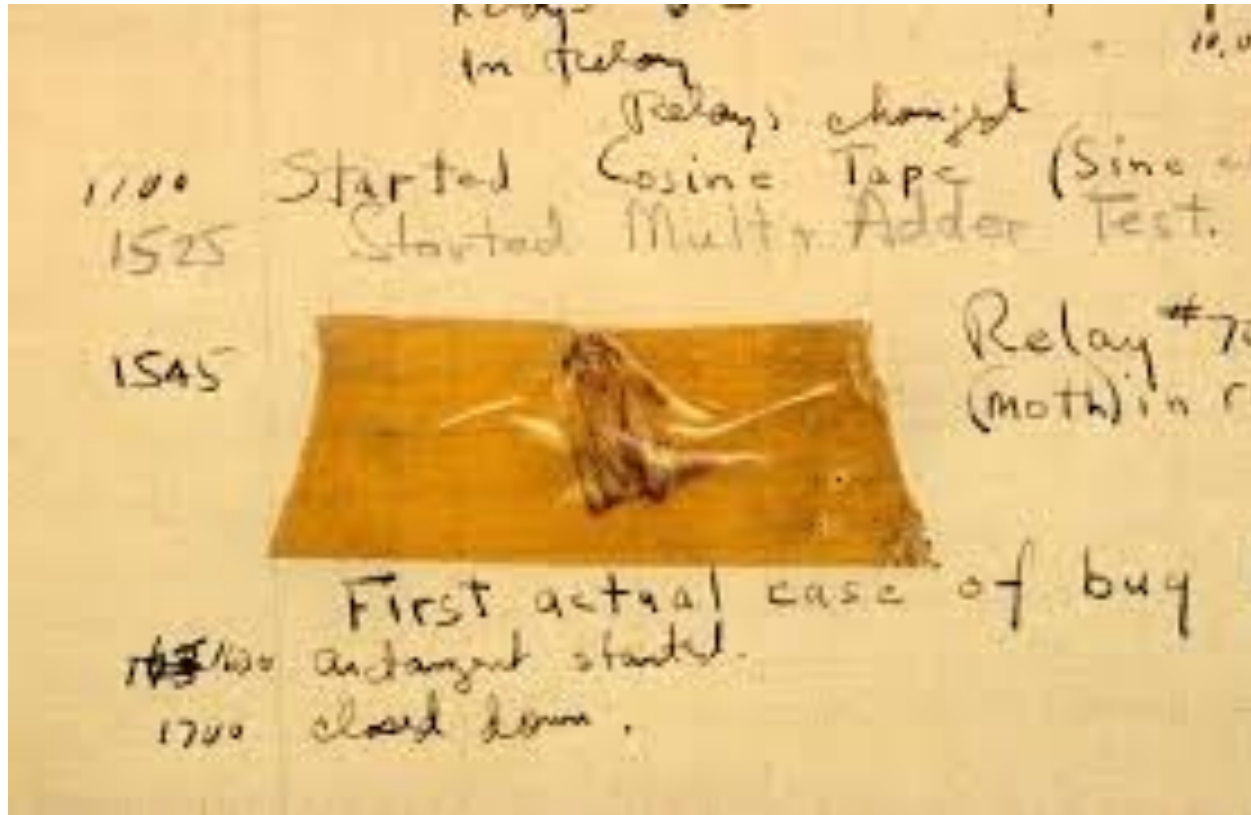 Relays
In Relay 10,0
Relays changed
1100 Started Cosine Tape (Sine
1525 Started Mult+ Adder Test.
1545 Relay #70
(moth) in r
First actual case of bug
1630 arctangent started.
1700 closed down.